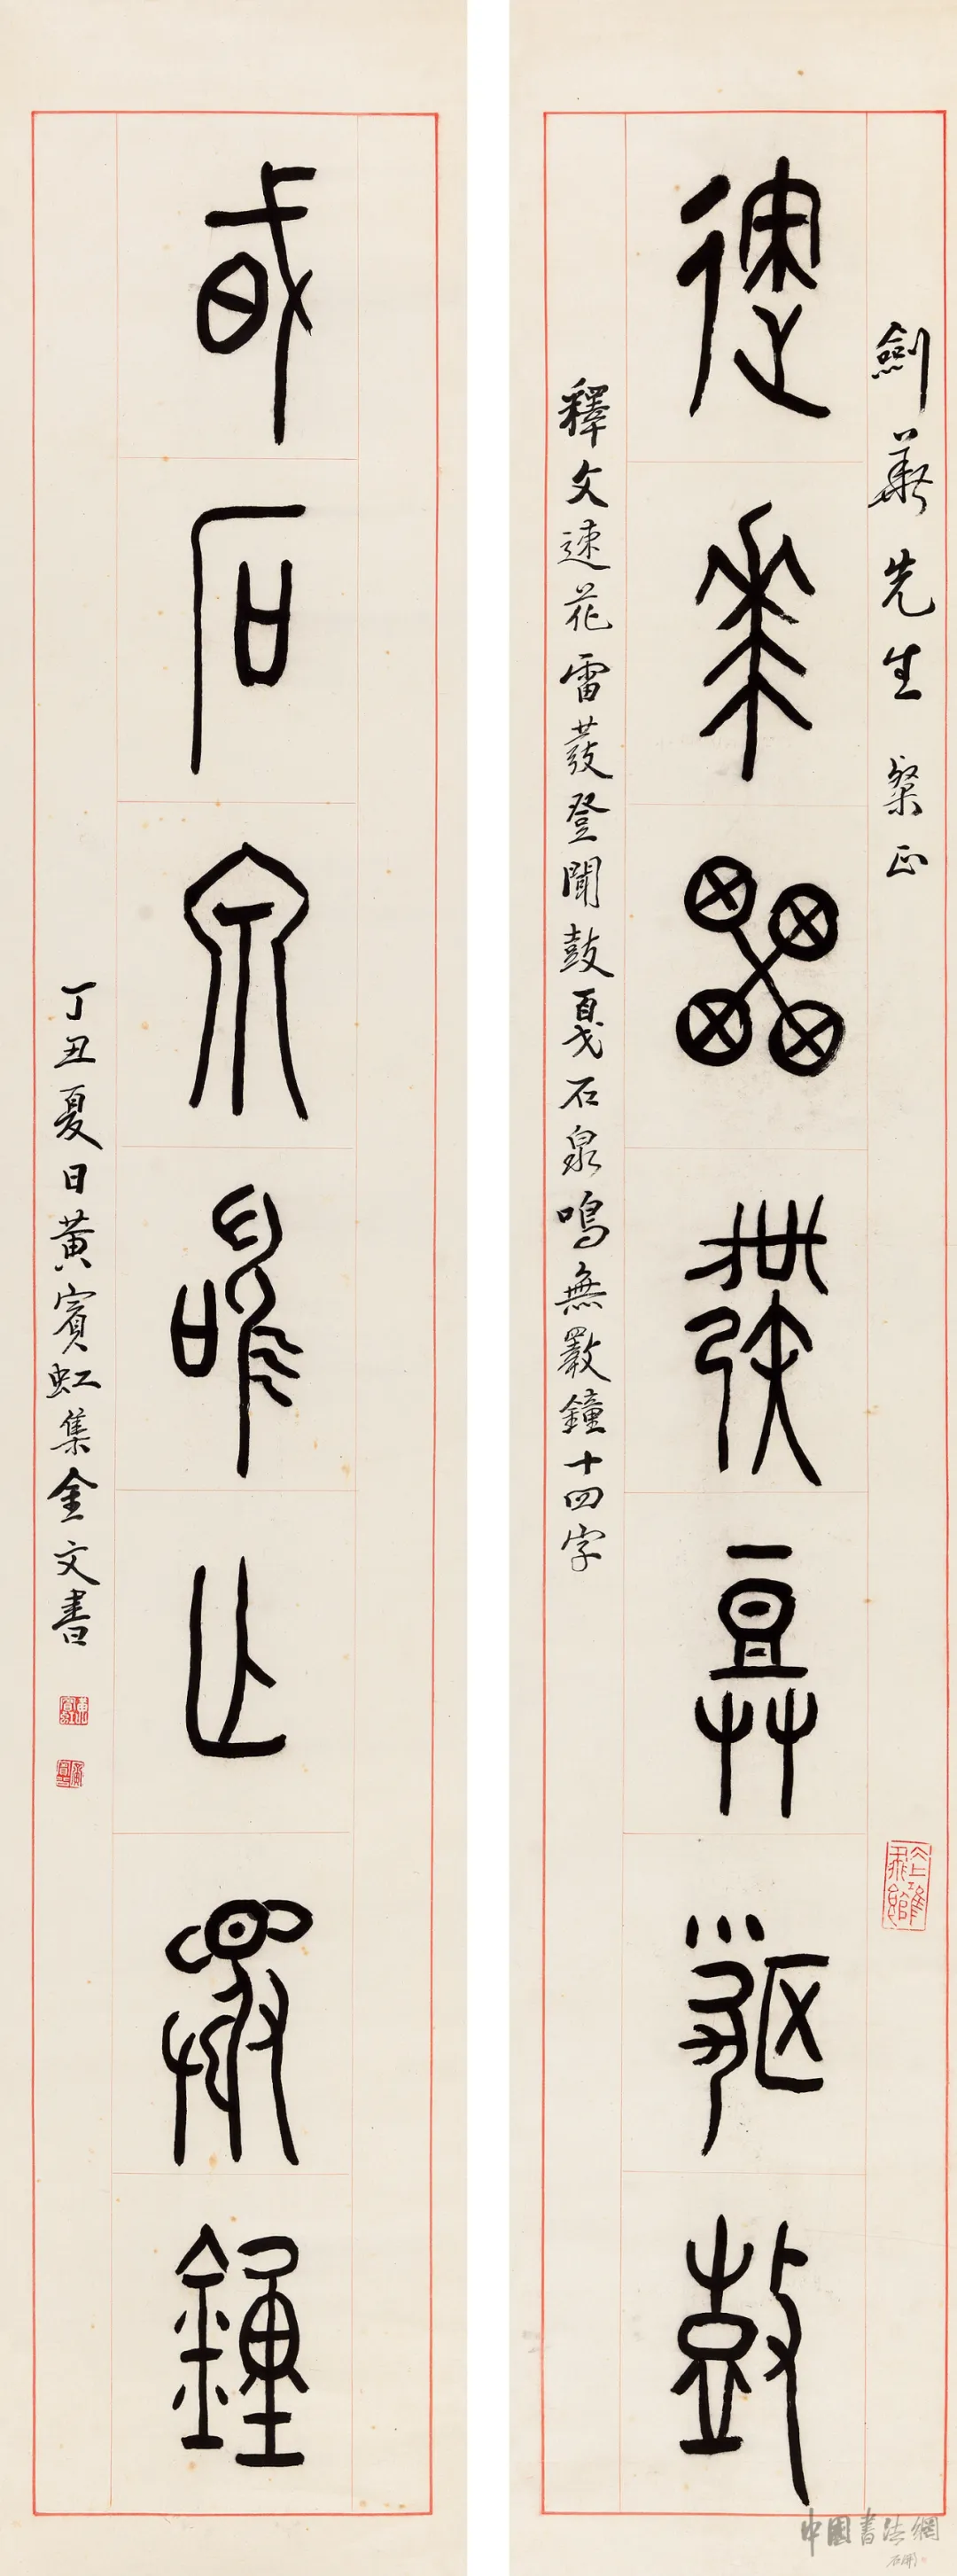 劍華先生 粲正
速花雷發登聞鼓
釋文速花雷發登聞鼓戛石泉鳴無斁鐘十四字
戛石泉鳴無斁鐘
丁丑夏日黃賓虹集金文書
黃賓虹
中國書法網